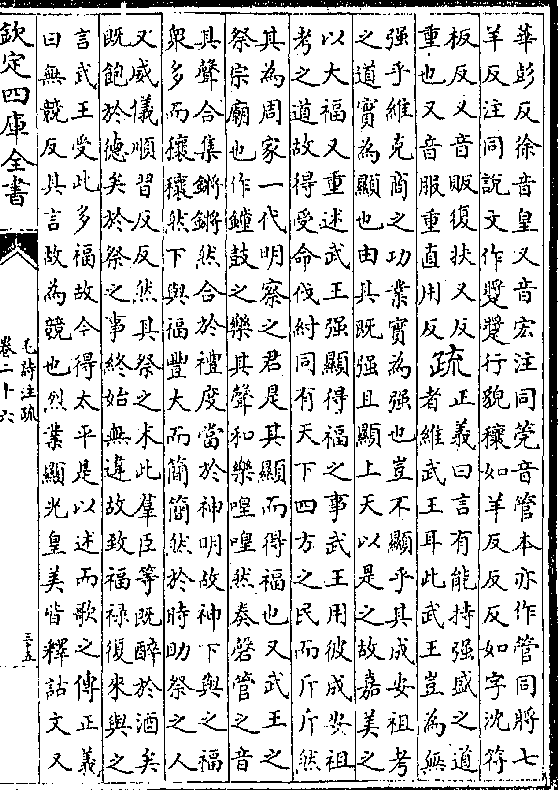 華彭反徐音皇又音宏注同筦音管本亦作管同將七
羊反注同說文作行貌穰如羊反反反如字沈符
板反又音販復扶又反
重也又音服重直用反
疏
正義曰言有能持强盛之道
者維武王耳此武王豈為無
强乎維克商之功業實為强也豈不顯乎其成安祖考
之道實為顯也由其既强且顯上天以是之故嘉美之
以大福又重述武王强顯得福之事武王用彼成安祖
考之道故得受命伐紂同有天下四方之民而斤斤然
其為周家一代明察之君是其顯而得福也又武王之
祭宗廟也作鐘鼓之樂其聲和樂喤喤然奏磬管之音
具聲合集鏘鏘然合於禮度當於神明故神下與之福
衆多而穰穰然下與福豐大而簡簡然於時助祭之人
又威儀順習反反然其祭之末此羣臣等既醉於酒矣
既飽於德矣於祭之事終始無違故致福禄復來與之
言武王受此多福故今得太平是以述而歌之傳正義
曰無競反其言故為競也烈業顯光皇美皆釋詁文又
欽定四庫全書
毛詩注疏
卷二十六
三十五